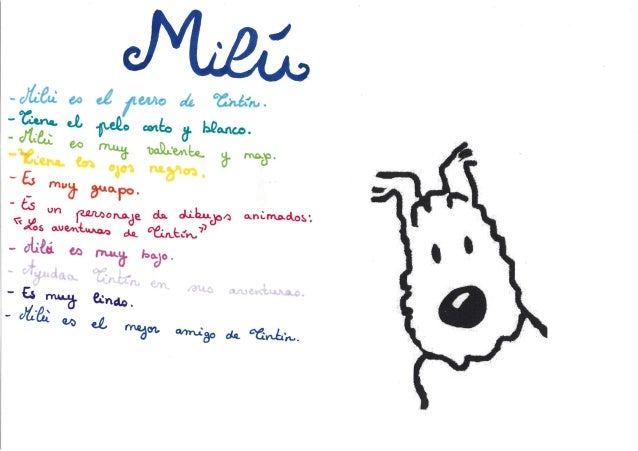 Milú
- Milú es el perro de Tintín.
- Tiene el pelo corto y blanco.
- Milú es muy valiente y majo.
- Tiene los ojos negros.
- Es muy guapo.
- Es un personaje da dibujos animados:
"Los aventuras de Tintín"
- Milú es muy bajo.
- Ayudaa Tintín en sus aventuras.
- Es muy lindo.
- Milú es el mejor amigo de Tintin.